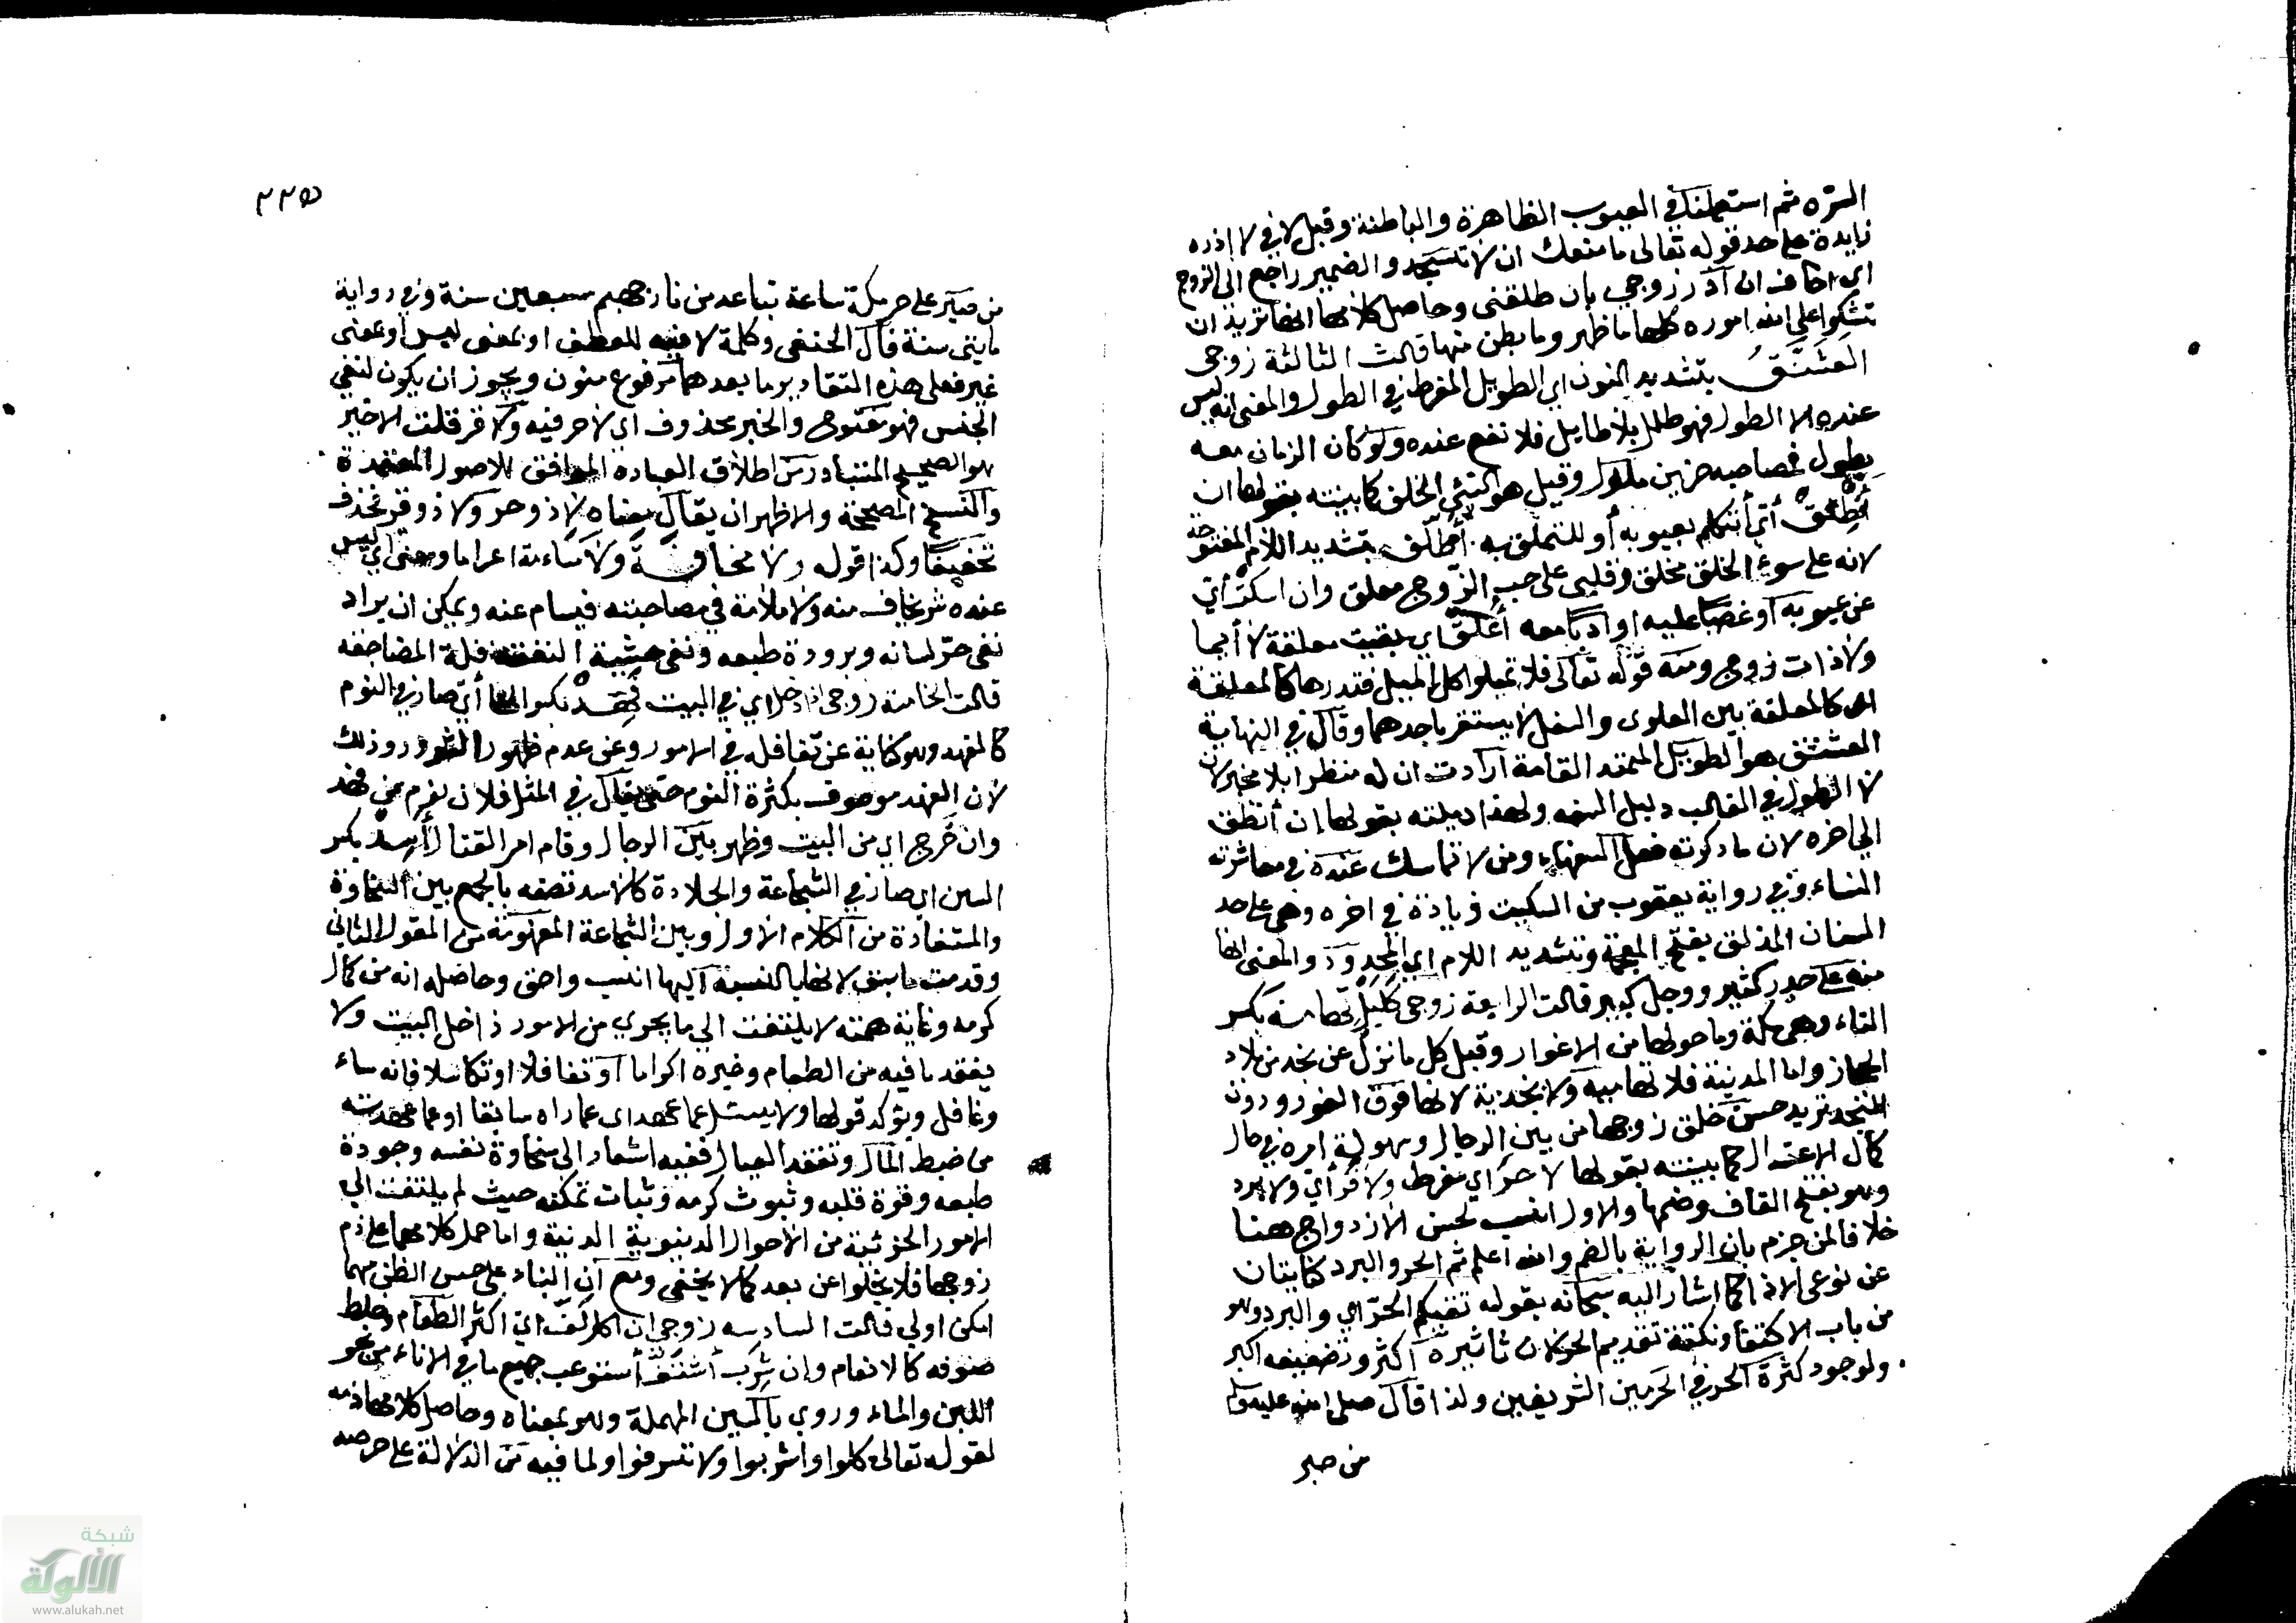 السترة ثم استعملتك في العيوب الظاهرة والباطنة وقيل لا في لا اذره
زايدة على حد قوله تعالى ما منعك ان لا تسجد والضمير راجع الى الزوج
اي اخاف ان اذر زوجي بان طلقني وحاصل كلامها انها تريد ان
تشكوا على الله اموره كلها ما ظهر وما بطن منها قالت الثالثة زوجي
العَشَنَّقُ بتشديد النون اي الطويل المفرط في الطول والمعنى انه ليس
عنده الا الطول فهو طلل بلا طايل فلا نفع عنده ولو كان الزمان معه
يطول فمصاحبه حزين ملول وقيل هو السّيّئ الخلق كما بينته بقولها ان
أَنْطِقْ أي أتكلم بعيوبه أو للتملق به أُطَلَّقْ بتشديد اللام المفتوحة
لانه على سوء الخلق مخلق وقلبي على حب الزوج معلق وان اسكتْ أي
عن عيوبه او غضبا عليه او ادبا معه أُعَلَّقْ اي بقيت معلقة لا أيما
ولا ذات زوج ومنه قوله تعالى فلا تميلوا كل الميل فتذروها كالمعلقة
اي كالمعلقة بين العلوي والسفل لا يستقر باحدهما وقال في النهاية
العشنق هو الطويل الممتد القامة ارادت ان له منظرا بلا مخبر لان
لان الطول في الغالب دليل السفه ولهذا ذيلته بقولها ان أنطق
الى اخره لان ما ذكرته فعل السفهاء ومن لا تماسك عنده في معاشرته
النساء وفي رواية يعقوب من السكيت زيادة في اخره وهي على حد
السنان المذلق بفتح المعجمة وتشديد اللام اي المحدود والمعنى انها
منه على حذر كثير ووجل كبير قالت الرابعة زوجي كَلَيْلِ تِهامة بكسر
التاء وهي مكة وما حولها من الاغوار وقيل كل ما نزل عن نجد من بلاد
الحجاز واما المدينة فلا تهامية ولا نجدية لانها فوق الغور ودون
النجد تريد حسن خلق زوجها من بين الرجال وسهولة امره في حال
كمال الاعتدال كما بينته بقولها لا حرّ اي مفرط ولا قُرّ أي ولا برد
وهو بفتح القاف وضمها والاول انسب لحسن الازدواج ههنا
خلافا لمن جزم بان الرواية بالضم والله اعلم ثم الحر والبرد كنايتان
عن نوعي الاذى كما اشار اليه سبحانه بقوله تقيكم الحرّ اي والبرد وهو
من باب الاكتفا ونكتة تقديم الحر لان تاثيره اكثر وتضعيفه اكبر
ولوجود كثرة الحر في الحرمين الشريفين ولذا قال صلى الله عليه وسلم
من صبر
٢٢٥
من صبر على حر مكة ساعة تباعد من نار جهنم سبعين سنة وفي رواية
مايتي سنة قال الحنفي وكلمة لا فيه للعطف او بمعنى ليس او بمعنى
غير فعلى هذه التقادير ما بعدهما مرفوع منون ويجوز ان يكون لنفي
الجنس فهو مفتوح والخبر محذوف اي لا حر فيه ولا قر قلت الاخير
هو الصحيح المتبادر من اطلاق العبارة الموافق للاصول المعتمدة
والنسخ المصححة والاظهر ان يقال معناه لا ذو حر ولا ذو قر فحذف
تخفيفا وكذا قوله ولا مخافةَ ولا سَاٰمة اعرابا ومعنى أي ليس
عنده شر يخاف منه ولا ملامة في مصاحبته فيسام عنه ويمكن ان يراد
نفي حرّ لسانه وبرودة طبعه ونفي خشية النفقة قلة المضاجعه
قالت الخامسة زوجي ان دخل اي في البيت فَهِدَ بكسر الها أي صار في النوم
كالفهد وهو كناية عن تغافله في الامور وعن عدم ظهور الشرور وذلك
لان الفهد موصوف بكثرة النوم حتى يقال في المثل فلان نوم من فهد
وان خَرج اي من البيت وظهر بين الرجال وقام امر القتال أَسِدَ بكسر
السين اي صار في الشجاعة والجلادة كالاسد تصفه بالجمع بين السخاوة
والمستفادة من الكلام الاول وبين الشجاعة المفهومة من المقول الثاني
وقدمت ما سبق لانها بالنسبة اليها انسب واحق وحاصله انه من كمال
كرمه وغاية همته لا يلتفت الى ما يجري من الامور داخل البيت ولا
يفقد ما فيه من الطعام وغيره اكراما او تغافلا او تكاسلا فانه ساء
وغافل ويؤكد قولها ولا يسئل عما عهد اي عما راه سابقا او عما عهدته
من ضبط المال وتفقد العيال ففيه اشعار الى سخاوة نفسه وجودة
طبعه وقوة قلبه وثبوت كرمه وثبات تمكنه حيث لم يلتفت الى
الامور الجزئية من الاحوال الدنيوية الدنية واما حمل كلامها على ذم
زوجها فلا يخلوا عن بعد كما لا يخفى ومع ان البناء على حسن الظن مهما
امكن اولى قالت السادسه زوجي ان اكل لَفّ اي اكثر الطعام وخلط
صنوفه كالانعام وان شَرِبَ أشتَفَّ أستوعب جميع ما في الاناء من نحو
اللبن والماء وروي بالسين المهملة وهو بمعناه وحاصل كلامها ذمه
لقوله تعالى كلوا واشربوا ولا تسرفوا ولما فيه من الدلالة على حرصه
شبكة
الألوكة
www.alukah.net